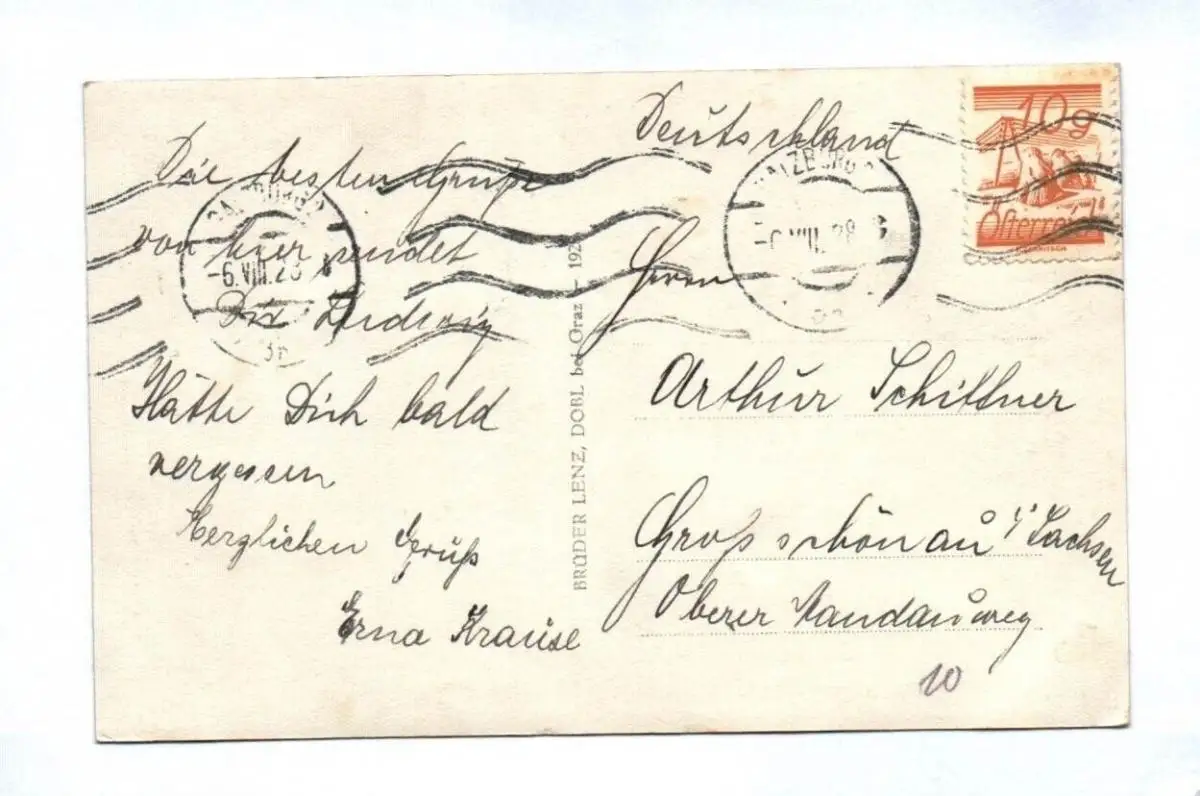 Die besten Grüße
von hier sendet
Dir Ludwig
Hätte Dich bald
vergessen
Herzlichen Gruß
Erna Krause
BRÜDER LENZ, DOBL bei Graz – 192
Deutschland
Herrn
Arthur Schiffner
Großschönau i/ Sachsen
Oberer
10
SALZBURG 2
-6.VIII.28
SALZBURG 2
VIII. 28
10g
Österreich